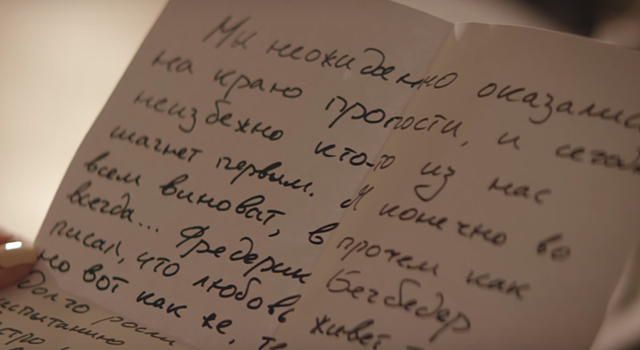 Мы неожиданно оказались
на краю пропасти, и
неизбежно кто-то из нас
шагнет первым. Я конечно во
всем виноват, впрочем как
всегда... Фредерик Бегбедер
писал, что любовь живет
но вот как же,
долго